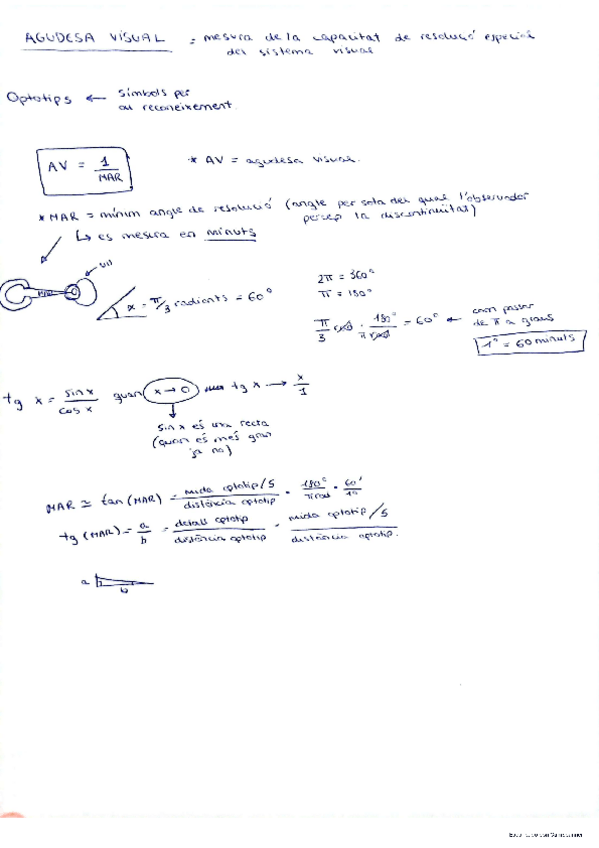 AGUDESA VISUAL = mesura de la capacitat de resolució espacial
del sistema visual
Optotips ← símbols per
au reconeixement.
AV = 1/MAR
* AV = agudesa visual.
* MAR = mínim angle de resolució (angle per sota del qual l'observador
percep la discontinuïtat)
↳ es mesura en minuts
ull
MAR
α = π/3 radiants = 60°
2π = 360°
π = 180°
π/3 rad · 180°/π rad = 60° ← com passar
de π a graus
1° = 60 minuts
tg x = sin x/cos x quan x → 0 tg x → x/1
sin x és una recta
(quan és més gran
ja no)
MAR ≃ tan (MAR) = mida optotip/5 / distància optotip · 180°/π rad · 60'/1°
tg (MAR) = a/b = detall optotip / distància optotip = mida optotip/5 / distància optotip.
a
b